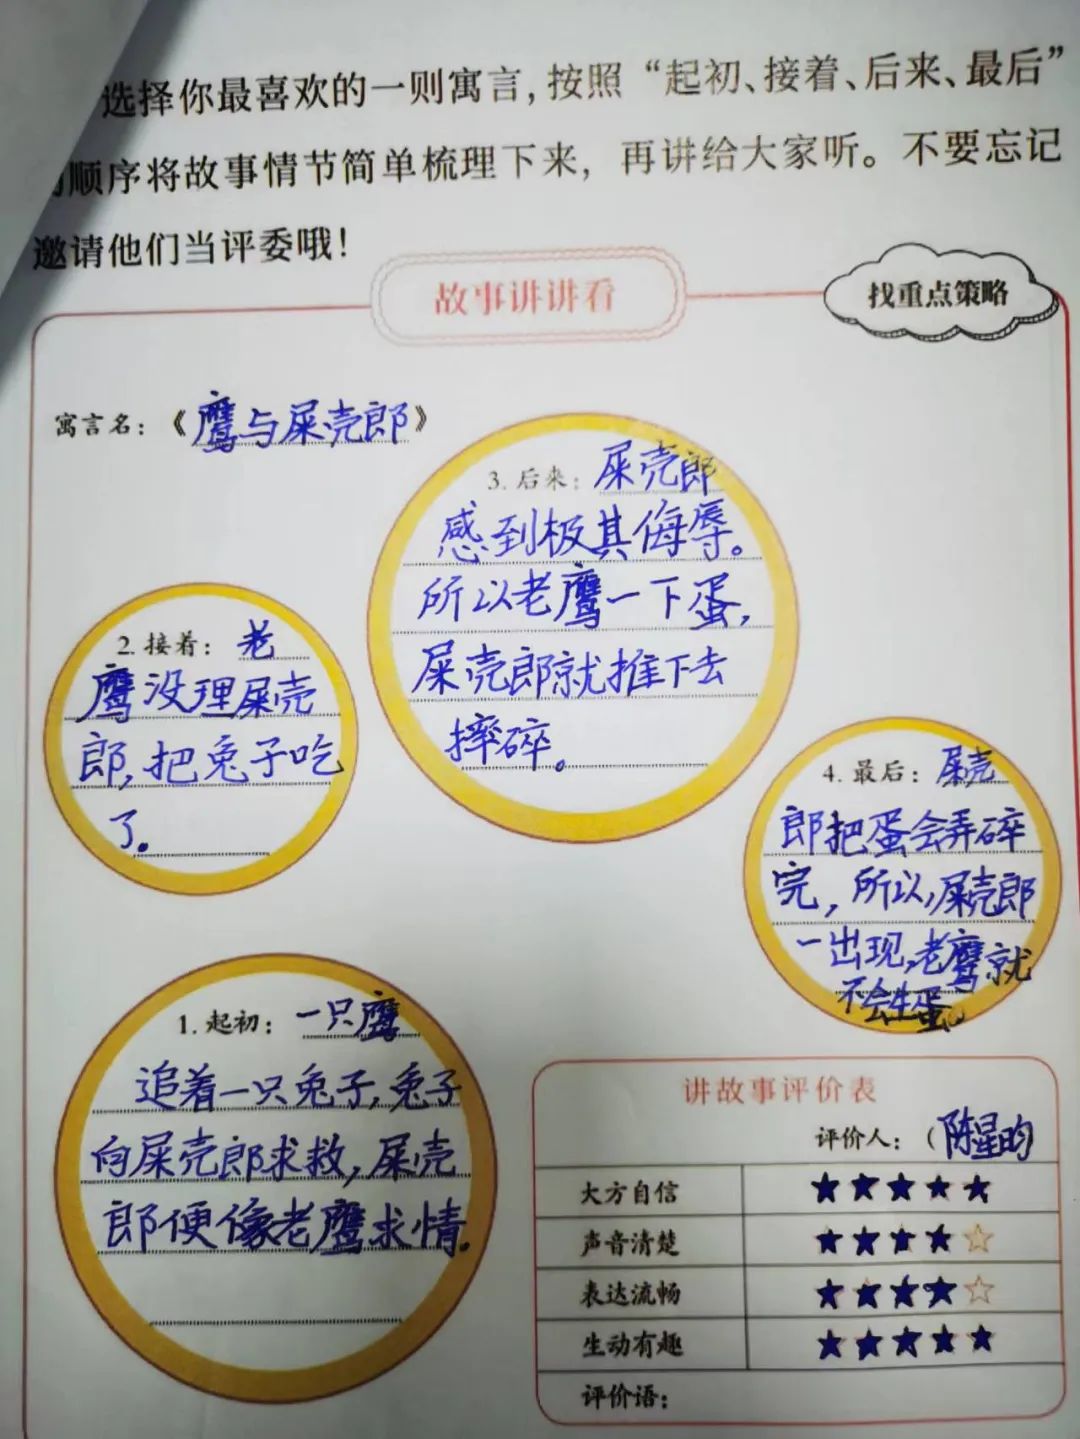 选择你最喜欢的一则寓言，按照“起初、接着、后来、最后”
顺序将故事情节简单梳理下来，再讲给大家听。不要忘记
邀请他们当评委哦！
故事讲讲看
找重点策略
寓言名：《鹰与屎壳郎》
1. 起初：一只鹰
追着一只兔子，兔子
向屎壳郎求救，屎壳
郎便像老鹰求情.
2. 接着：老
鹰没理屎壳
郎，把兔子吃
了。
3. 后来：屎壳郎
感到极其侮辱。
所以老鹰一下蛋，
屎壳郎就推下去
摔碎。
4. 最后：屎壳
郎把蛋会弄碎
完，所以，屎壳郎
一出现，老鹰就
不会生蛋。
讲故事评价表
评价人：（陈星昀）
大方自信 ★★★★★
声音清楚 ★★★★☆
表达流畅 ★★★★☆
生动有趣 ★★★★★
评价语：